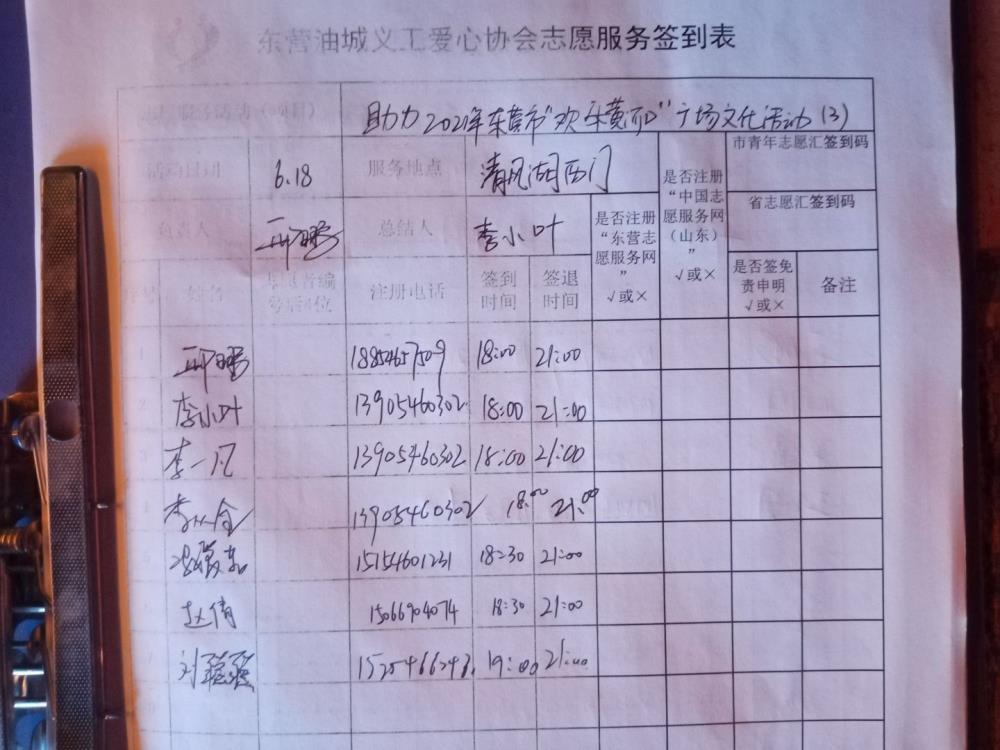 东营油城义工爱心协会志愿服务签到表
志愿服务活动（项目） 助力2021年东营市“欢乐黄河口”广场文化活动（3）
活动日期 6.18 服务地点 清风湖西门
是否注册“中国志愿服务网（山东）” √或×
市青年志愿汇签到码
负责人 邢鹏 总结人 李小叶
是否注册“东营志愿服务网” √或×
省志愿汇签到码
序号 姓名 志愿者编号后4位 注册电话 签到时间 签退时间 是否签免责申明 √或× 备注
1 邢鹏 18854657509 18:00 21:00
2 李小叶 13905460302 18:00 21:00
3 李一凡 13905460302 18:00 21:00
4 13905460302 18:00 21:00
5 15154601231 18:30 21:00
6 赵倩 15066904074 18:30 21:00
7 刘强强 19:00 21:00
8